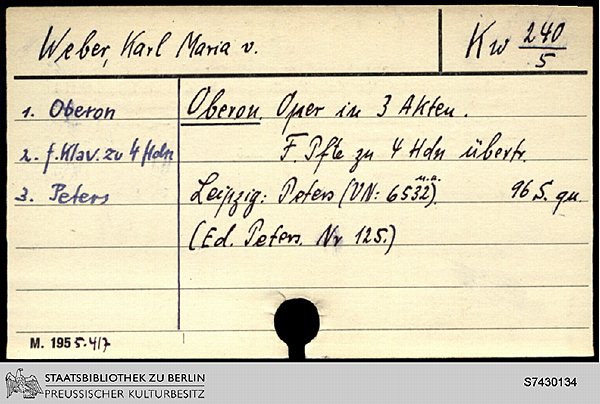 Weber, Karl Maria v.
Kw 240/5
1. Oberon
2. f. Klav. zu 4 Hdn
3. Peters
Oberon. Oper in 3 Akten.
F. Pfte zu 4 Hdn übertr.
Leipzig: Peters (VN: 6532 u.a.). 96 S. qu.
(Ed. Peters. Nr 125.)
M. 1955.417
STAATSBIBLIOTHEK ZU BERLIN
PREUSSISCHER KULTURBESITZ
S7430134